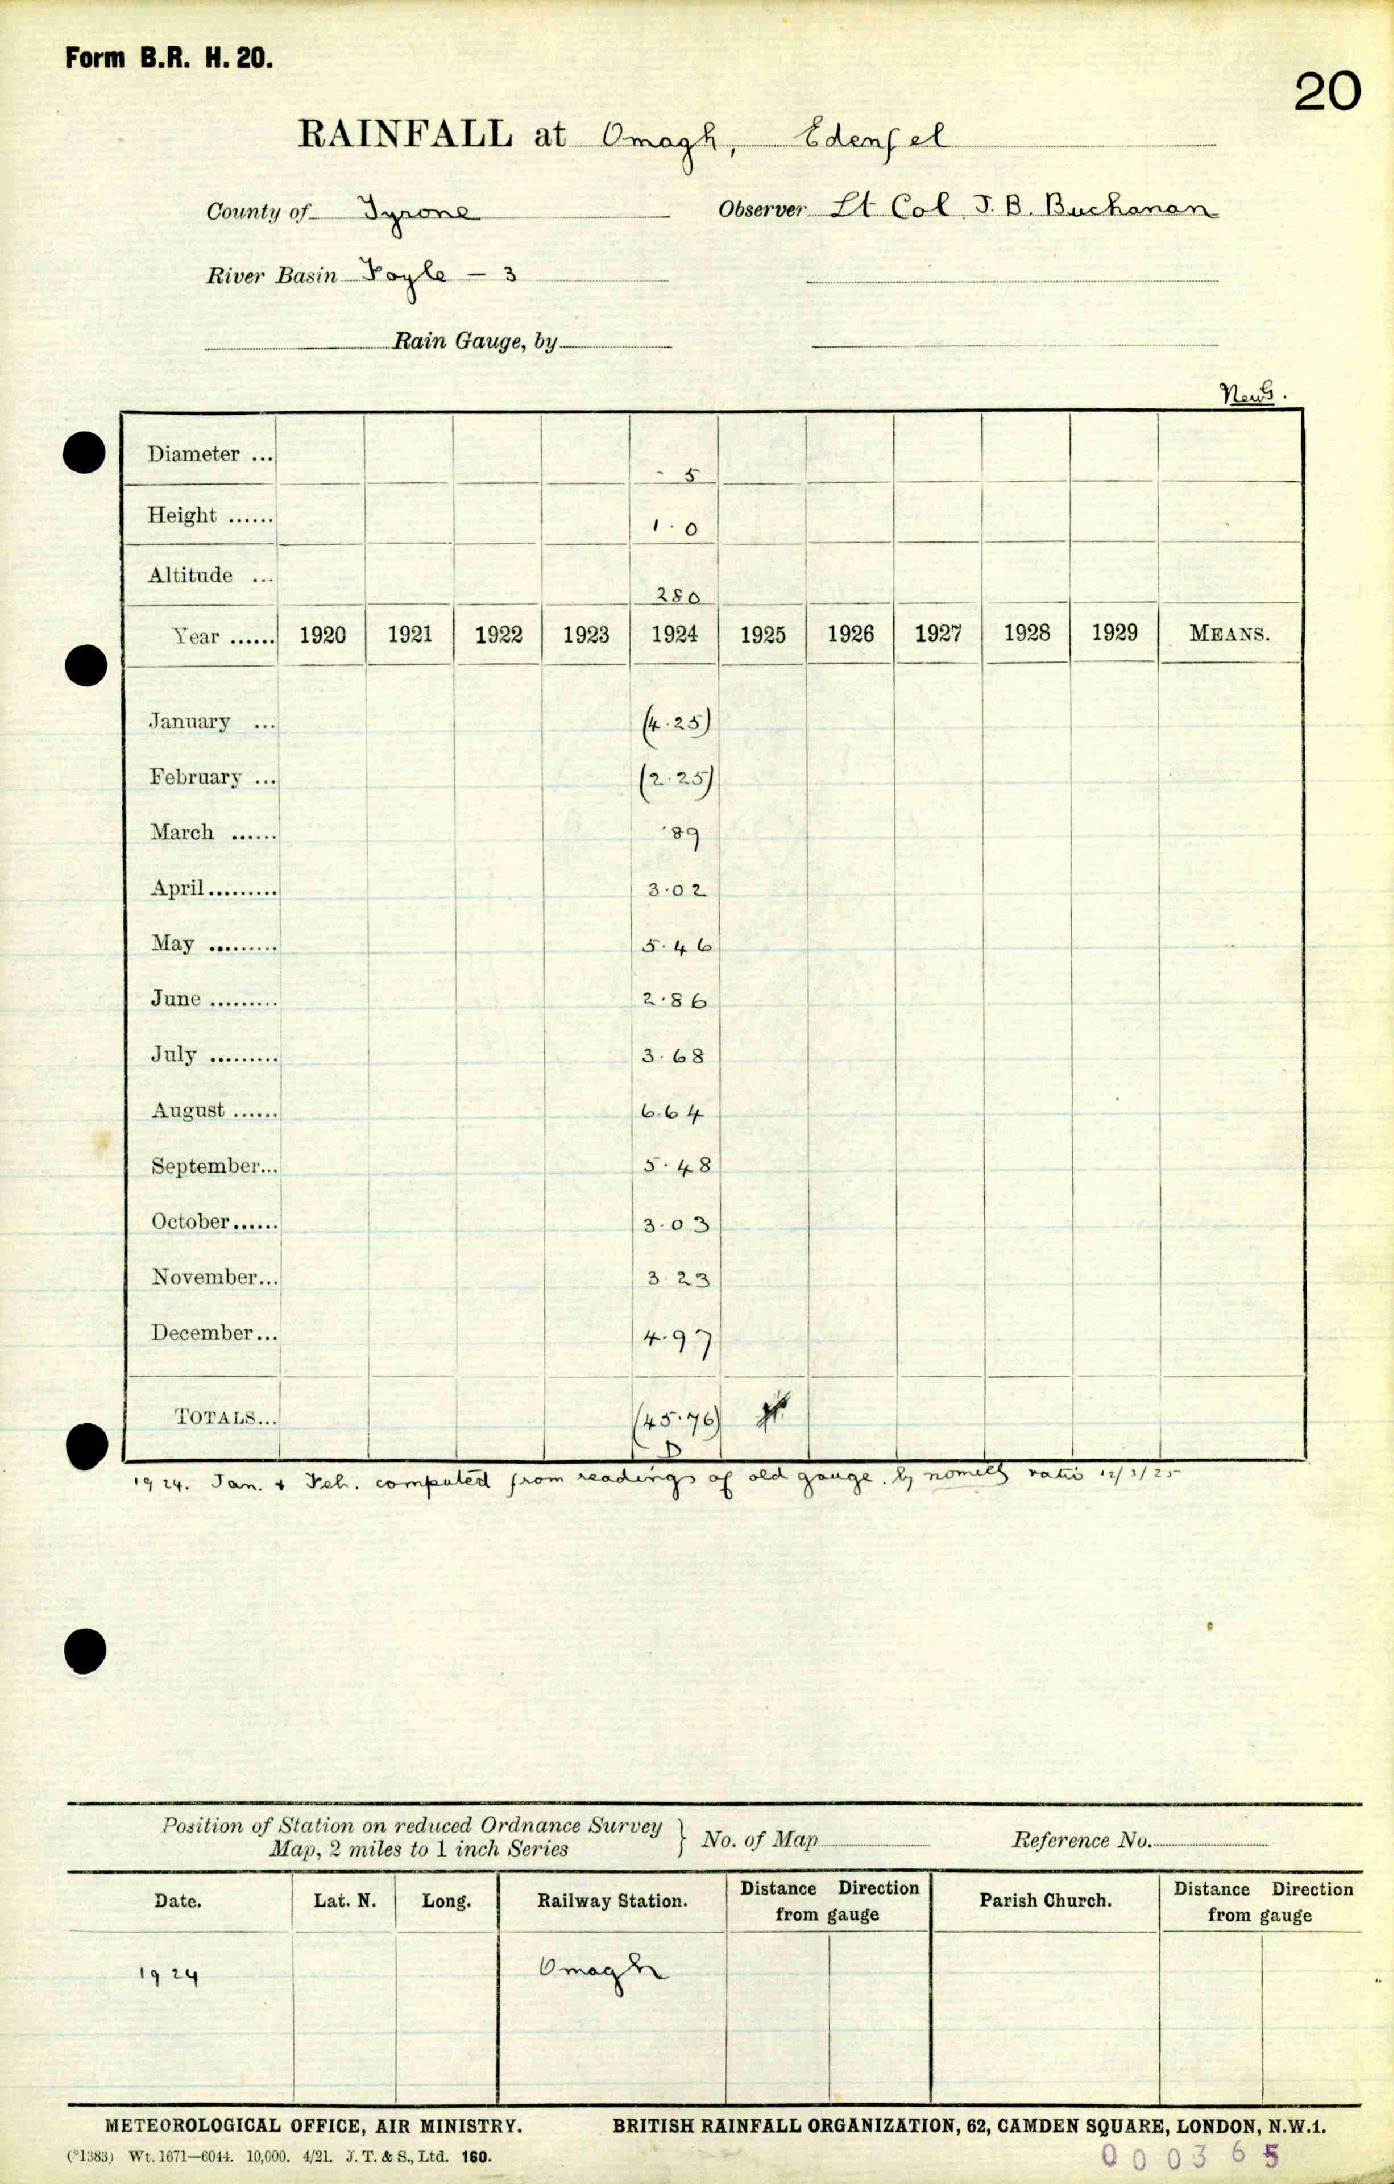 Form B.R. H. 20.
20
RAINFALL at Omagh, Edenfel
County of Tyrone Observer Lt Col J. B. Buchanan
River Basin Foyle - 3
Rain Gauge, by
New G.
Diameter ... 5
Height ...... 1.0
Altitude ... 280
Year ...... 1920 1921 1922 1923 1924 1925 1926 1927 1928 1929 MEANS.
January ... (4.25)
February ... (2.25)
March ...... .89
April......... 3.02
May ......... 5.46
June ......... 2.86
July ......... 3.68
August ...... 6.64
September... 5.48
October...... 3.03
November... 3 23
December... 4.97
TOTALS... (45.76)
D
1924. Jan. + Feb. computed from readings of old gauge. by ratio 12/3/25
Position of Station on reduced Ordnance Survey
Map, 2 miles to 1 inch Series } No. of Map Reference No.
Date. Lat. N. Long. Railway Station. Distance Direction from gauge Parish Church. Distance Direction from gauge
1924 Omagh
METEOROLOGICAL OFFICE, AIR MINISTRY. BRITISH RAINFALL ORGANIZATION, 62, CAMDEN SQUARE, LONDON, N.W.1.
(*1383) Wt. 1671—6044. 10,000. 4/21. J. T. & S., Ltd. 160.
000365